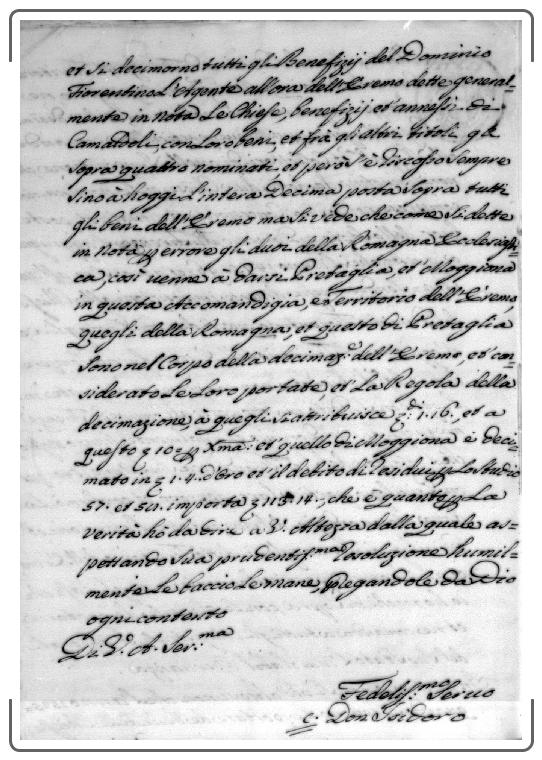 et si decimorno tutti gli Benefizij del Dominio
Fiorentino L'Agente all'ora dell'Eremo dette general=
mente in nota Le Chiese, benefizij et annessi di
Camaldoli, con Loro beni, et frà gli altri titoli
sopra quattro nominati, et però s'è discosso sempre
sino à hoggi L'intera Decima posta sopra tutti
gli beni dell'Eremo ma si vede che come si dette
in nota errore gli duoi della Romagna Ecclesiasti=
ca, così uenne à darsi Pretaglia, et Moggiona
in questa Accomandigia, e Territorio dell'Eremo,
quegli della Romagna, et questo di Pretaglia
sono nel Corpo della decimaz.e dell'Eremo, et con=
siderato Le Loro portate, et La Regola della
decimazione, à quegli si attribuisce 1.16., et a
questo 10 Xma: et quello di Moggiona è deci=
mato in 1.4. d'Oro et il debito di residui Lo studio
57. et 58. importa 113.14., che è quanto La
verità hò da dire a V. Altezza dalla quale as=
pettando sua prudentiss.ma resoluzione humil=
mente Le baccio Le mane, pregandole da Dio
ogni contento
Di V. A. Ser.ma
Fedeliss.mo Seruo
Don Isidoro